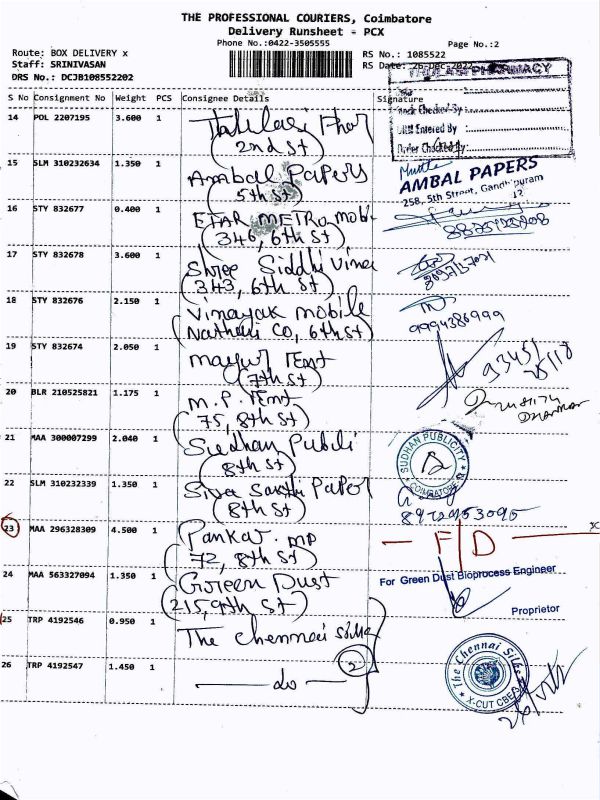 THE PROFESSIONAL COURIERS, Coimbatore
Delivery Runsheet - PCX
Phone No.:0422-3505555
Page No.:2
Route: BOX DELIVERY x
RS No.: 1085522
Staff: SRINIVASAN
RS Date: 26-Dec-2022
DRS No.: DCJB108552202
S No Consignment No Weight PCS Consignee Details Signature
PHARMACY
Stock Checked By :
Entered By :
Order Checked By :
14 POL 2207195 3.600 1
(2nd St)
15 SLM 310232634 1.350 1 Ambal Papers
(5th St)
AMBAL PAPERS
258, 5th Street, Gandhipuram
16 STY 832677 0.400 1 METRO mobi
(346, 6th St)
17 STY 832678 3.600 1 Shree Siddhi Vina
(343, 6th St)
18 STY 832676 2.150 1 Vinayak mobile
Nathari Co, 6th St)
9994386999
19 STY 832674 2.050 1 mayur Tent
(7th St)
93451
20 BLR 210525821 1.175 1 M.P. Tent
(75, 8th St)
21 MAA 300007299 2.040 1 Sudhan Publi
(8th St)
SUDHAN PUBLICITY
COIMBATORE
22 SLM 310232339 1.350 1 Siva Sakthi Paper
(8th St)
23 MAA 296328309 4.500 1 Pankaj MP
(72, 8th St)
F/D
24 MAA 563327094 1.350 1 Green Dust
(215, 9th St)
For Green Dust Bioprocess Engineer
Proprietor
25 TRP 4192546 0.950 1 The Chennai Silks
26 TRP 4192547 1.450 1 do
2
The Chennai Silks
X-CUT CBE